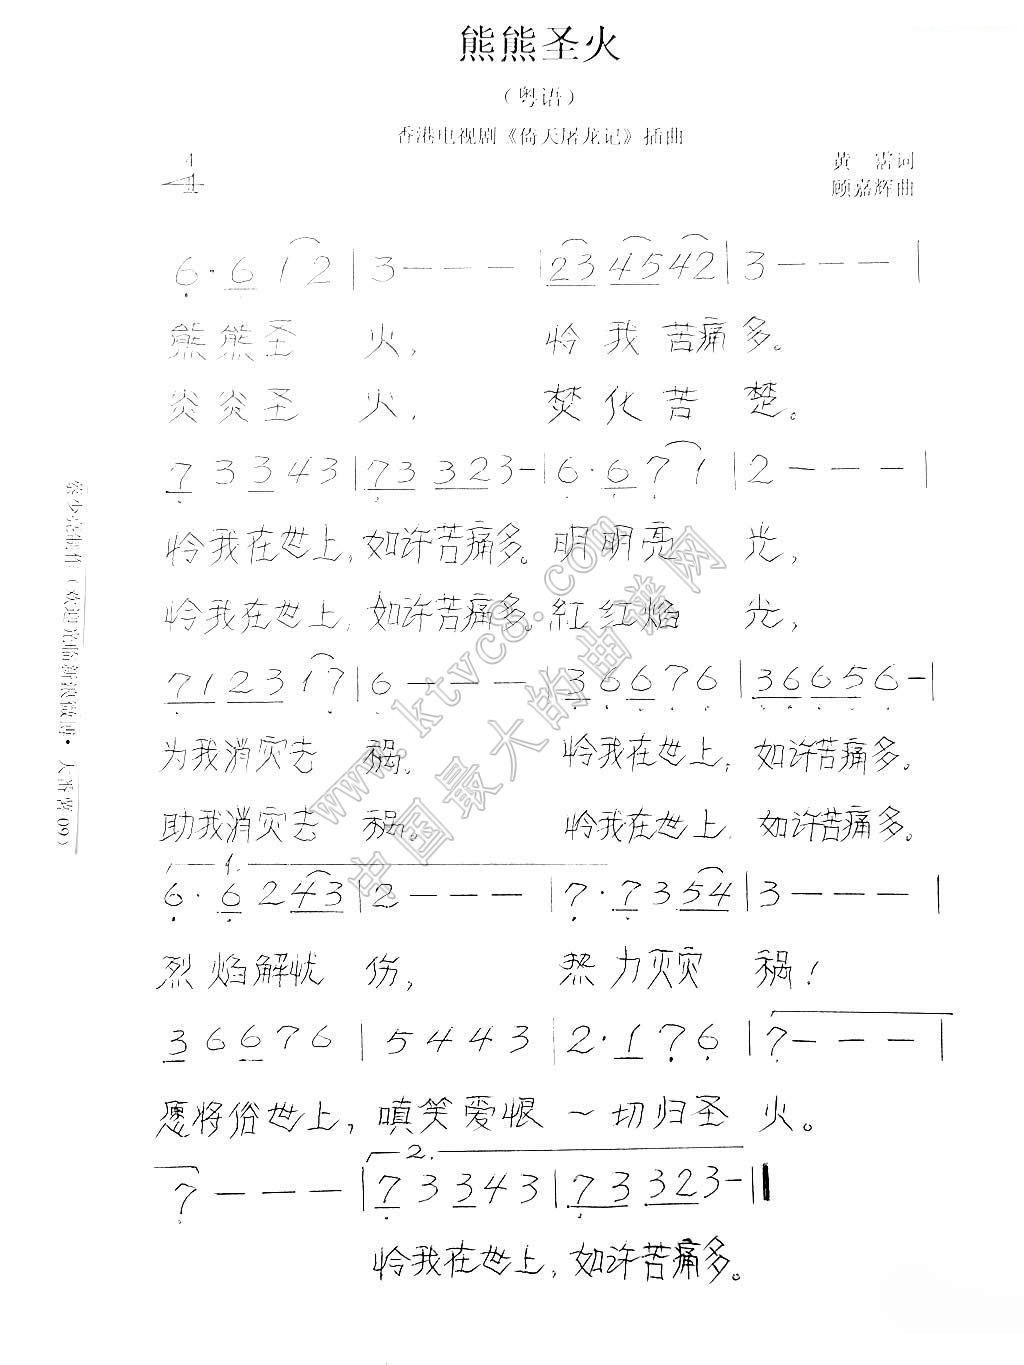 熊熊圣火
（粤语）
香港电视剧《倚天屠龙记》插曲
黄 霑词
4/4
顾嘉辉曲
6· 6 1 2 | 3 - - - | 23 45 42 | 3 - - - |
熊熊圣 火， 怜我苦痛多。
炎炎圣 火， 焚化苦 楚。
7 3 3 4 3 | 73 323- | 6· 6 7 1 | 2 - - - |
怜我在世上，如许苦痛多。明明亮 光，
怜我在世上，如许苦痛多。红红焰 光，
71 23 1 7 | 6 - - - | 36 67 6 | 36 65 6 - |
为我消灾去 祸。 怜我在世上，如许苦痛多。
助我消灾去 祸。 怜我在世上，如许苦痛多。
1.
6· 6 2 43 | 2 - - - | 7· 7 3 54 | 3 - - - |
烈焰解忧 伤， 热力灭灾 祸！
3 6 6 7 6 | 5 4 4 3 | 2· 1 7 6 | 7 - - - |
愿将俗世上，嗔笑爱恨一切归圣 火。
2.
7 - - - | 7 3 3 4 3 | 7 3 323- ‖
怜我在世上，如许苦痛多。
www.ktvc8.com
中国最大的曲谱网